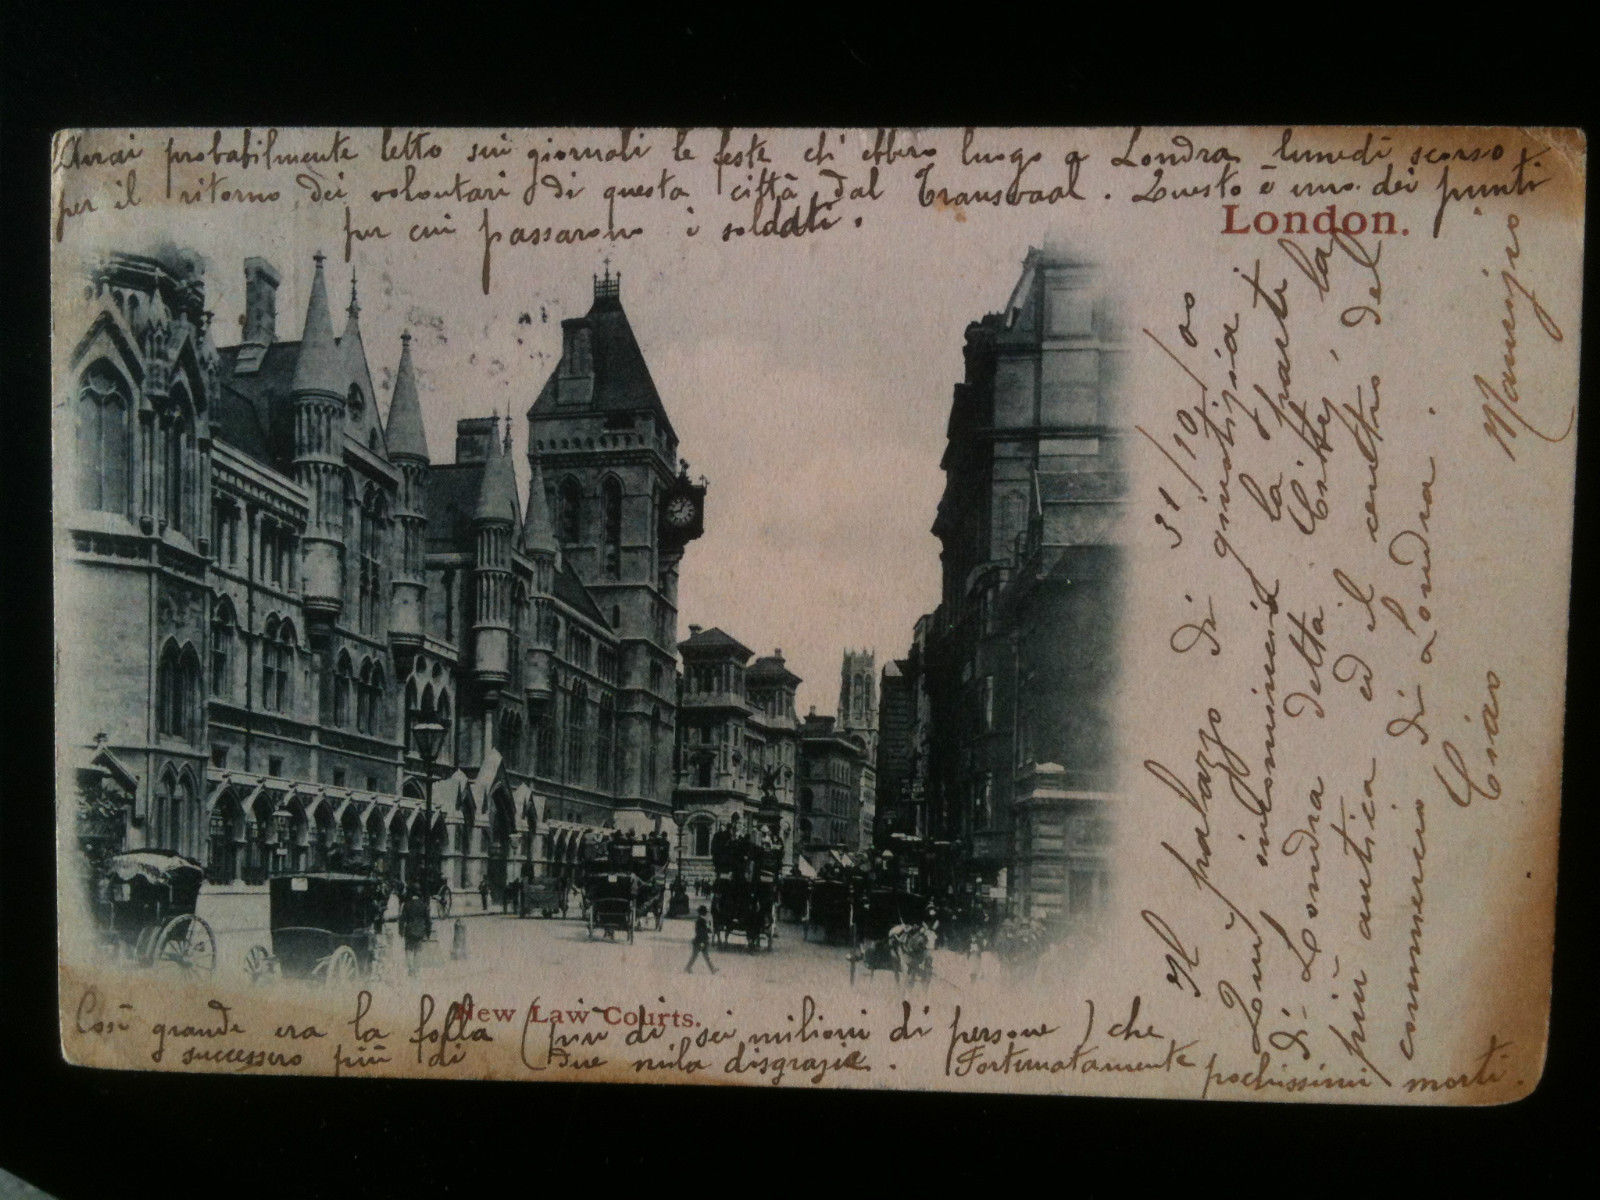 Avrai probabilmente letto sui giornali le feste ch' ebbero luogo a Londra lunedì scorso
per il ritorno dei volontari di questa città dal Transvaal. Questo è uno dei punti
per cui passarono i soldati.
London.
31/10/00
Il palazzo di giustizia
Qui incomincia la parte
di Londra detta City, la
più antica ed il centro del
commercio di Londra.
Ciao
Maurizio
New Law Courts.
Così grande era la folla (più di sei milioni di persone) che
successero più di due mila disgrazie. Fortunatamente pochissimi morti.